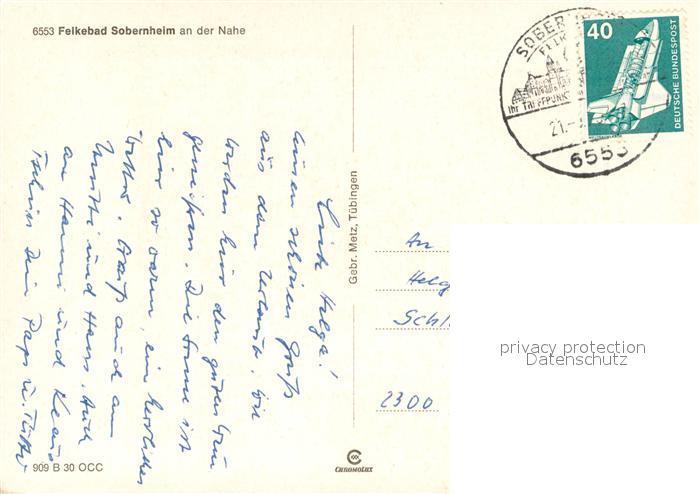 6553 Felkebad Sobernheim an der Nahe
SOBERNHEIM
FELK
Ihr TREFFPUNKT
21.
6553
40
DEUTSCHE BUNDESPOST
Liebe Helga!
Einen schönen Gruß
aus dem Urlaub. Wir
werden hier den guten Wein
genießen. Die Sonne ist
hier so warm, ein herrliches
Wetter. Gruß auch an
Mutti und Hans. Auch
an Hanni und Klaus
Tschüs Dein Paps u.
Gebr. Metz, Tübingen
An
Helg
Schl
2300
privacy protection
Datenschutz
909 B 30 OCC
CHROMOLUX